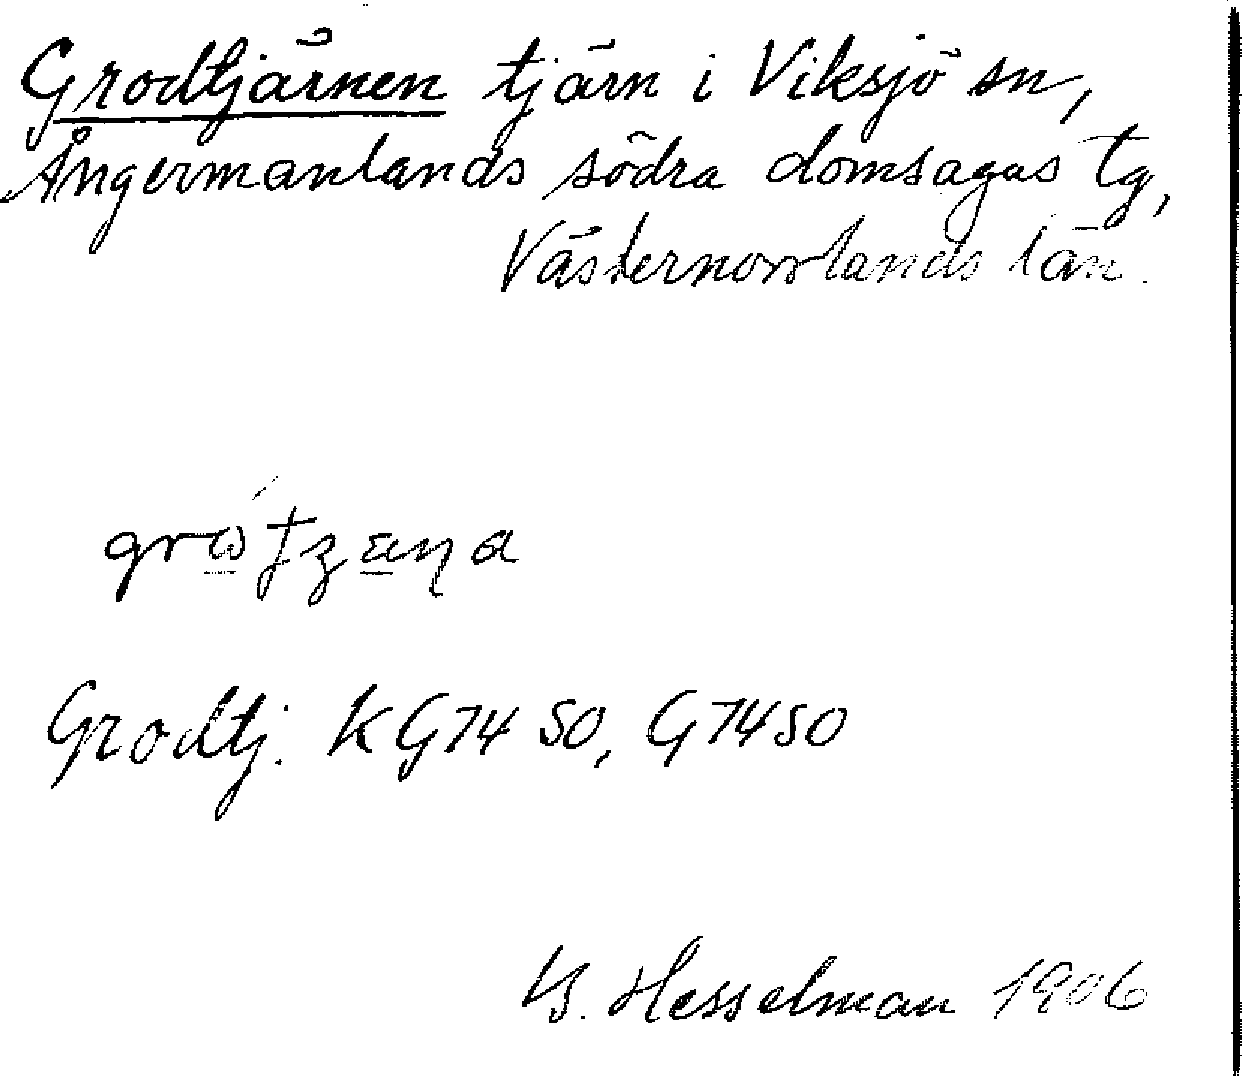 Grodtjärnen tjärn i Viksjö sn,
Ångermanlands södra domsagas tg,
Västernorrlands län.
Grodtj. KG7450, G7450
B. Hesselman 1906